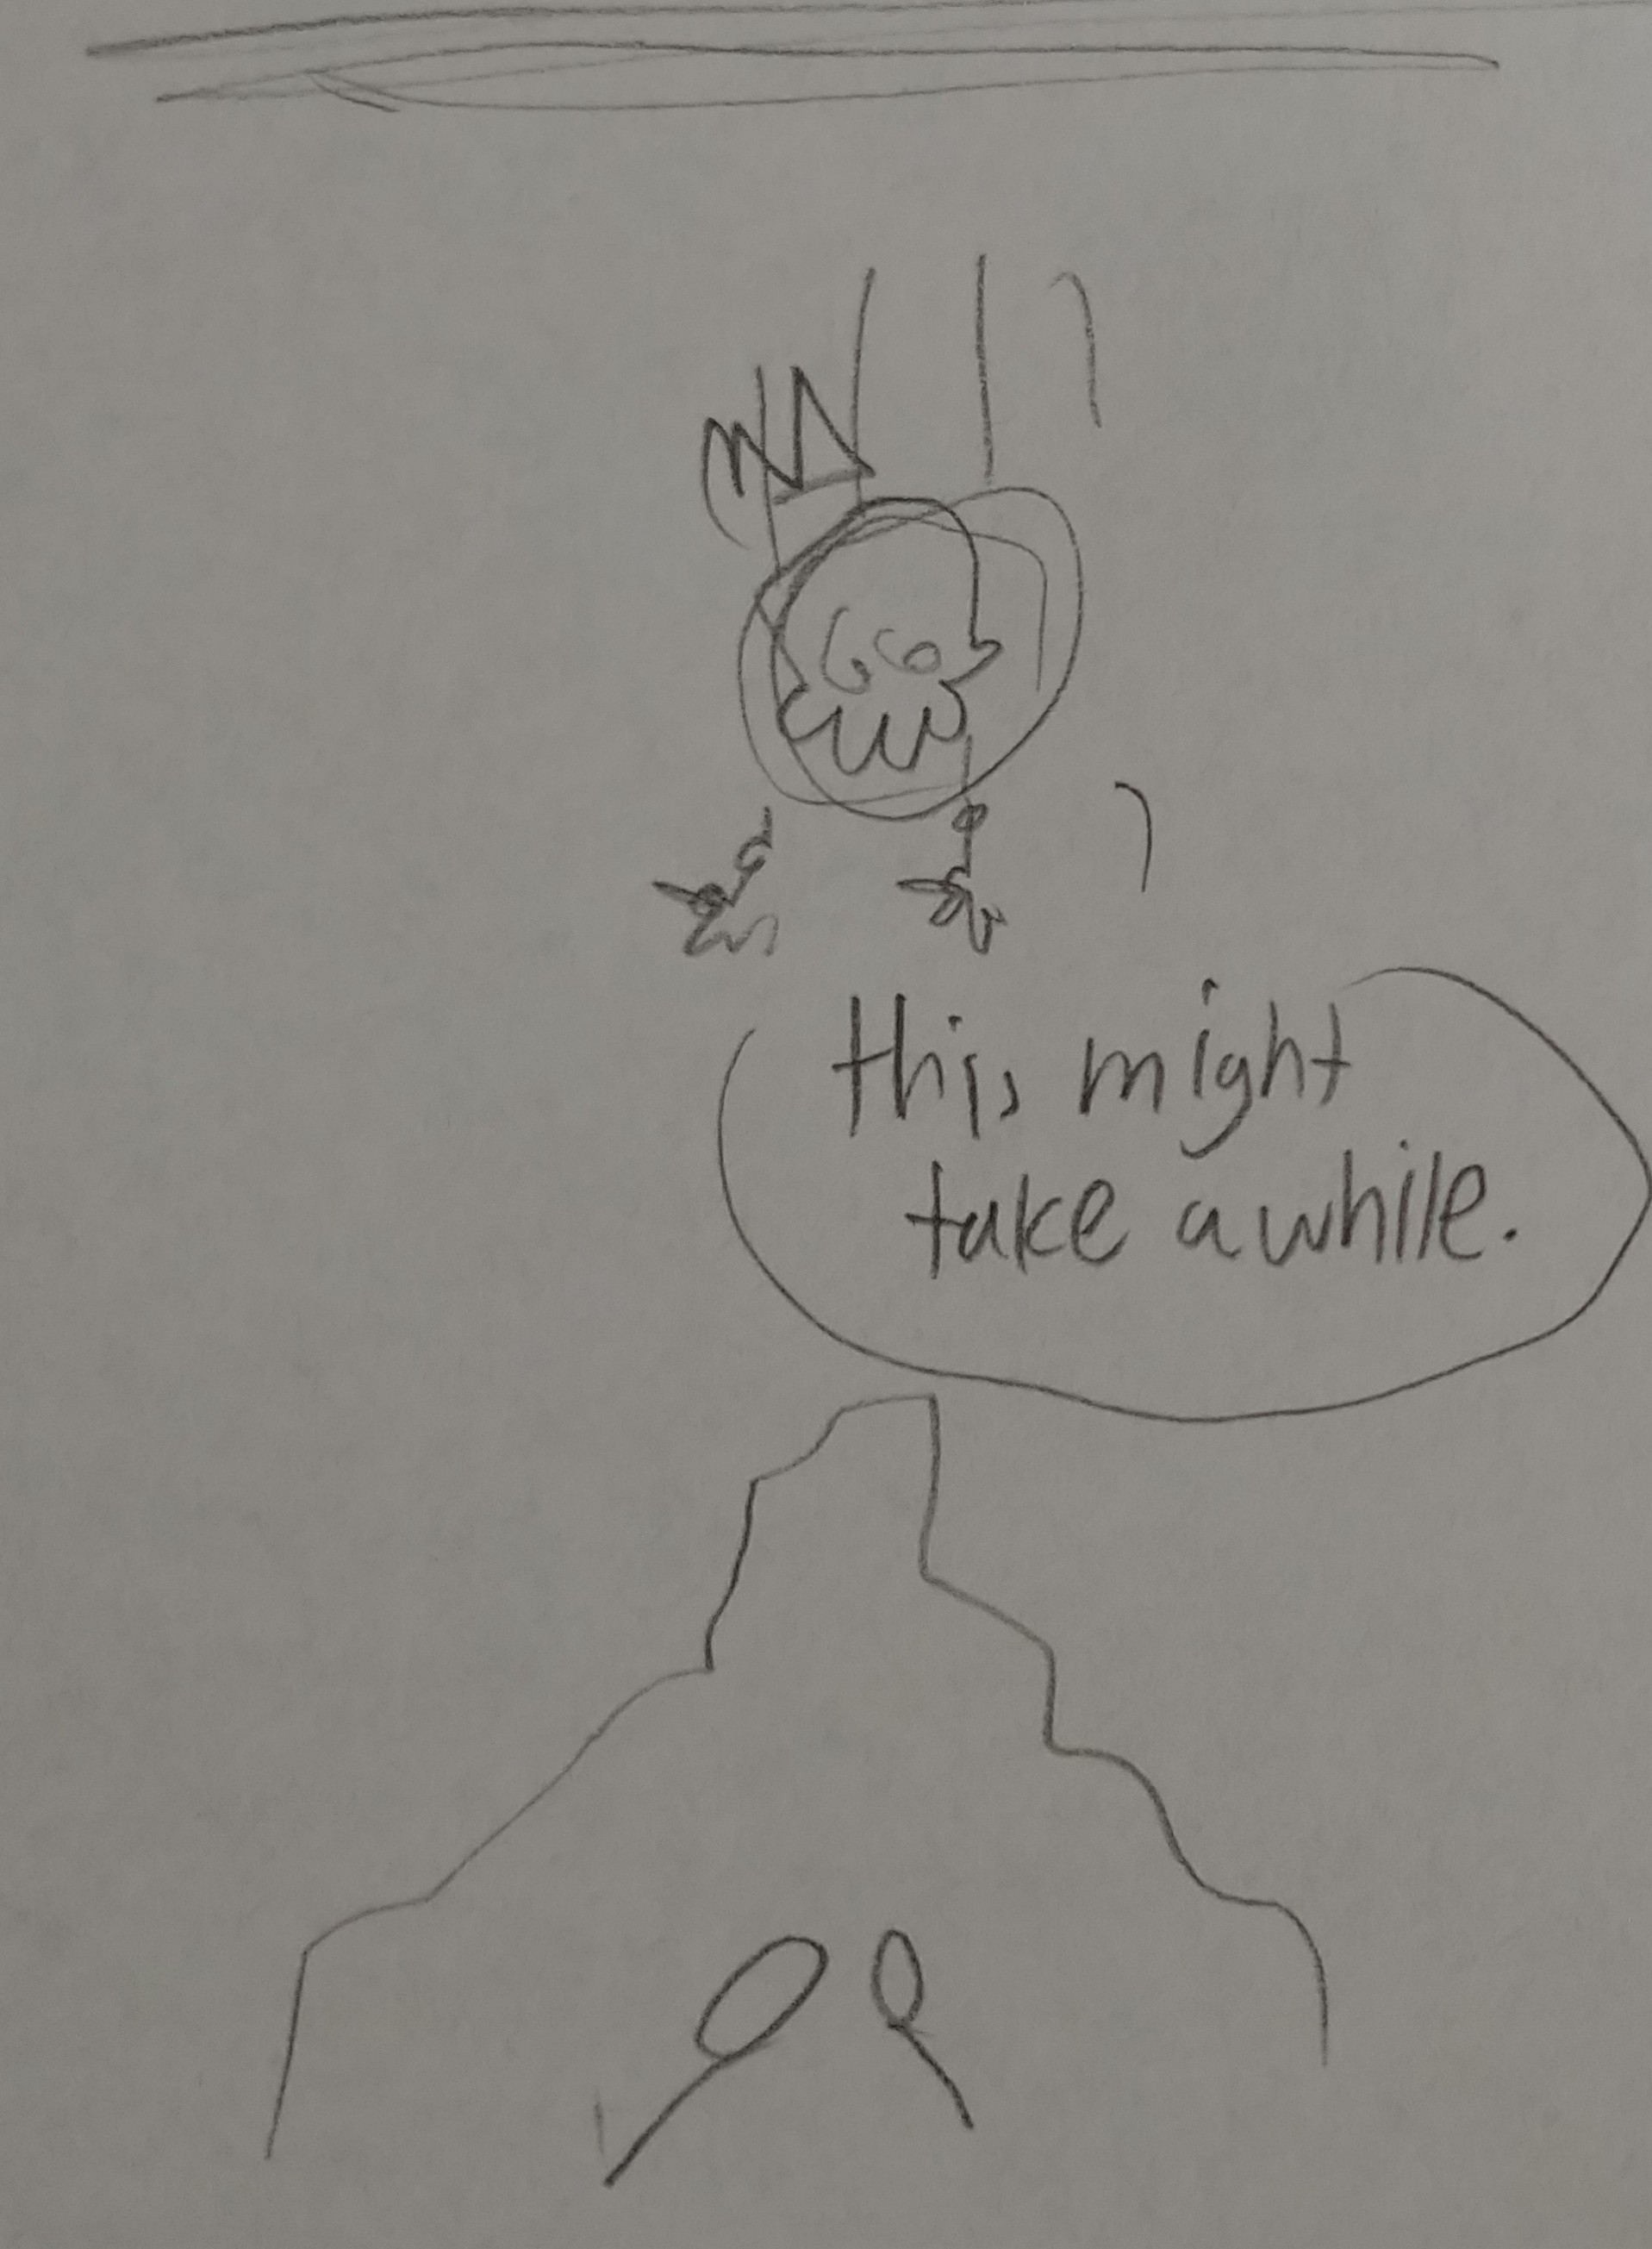 this might
take awhile.